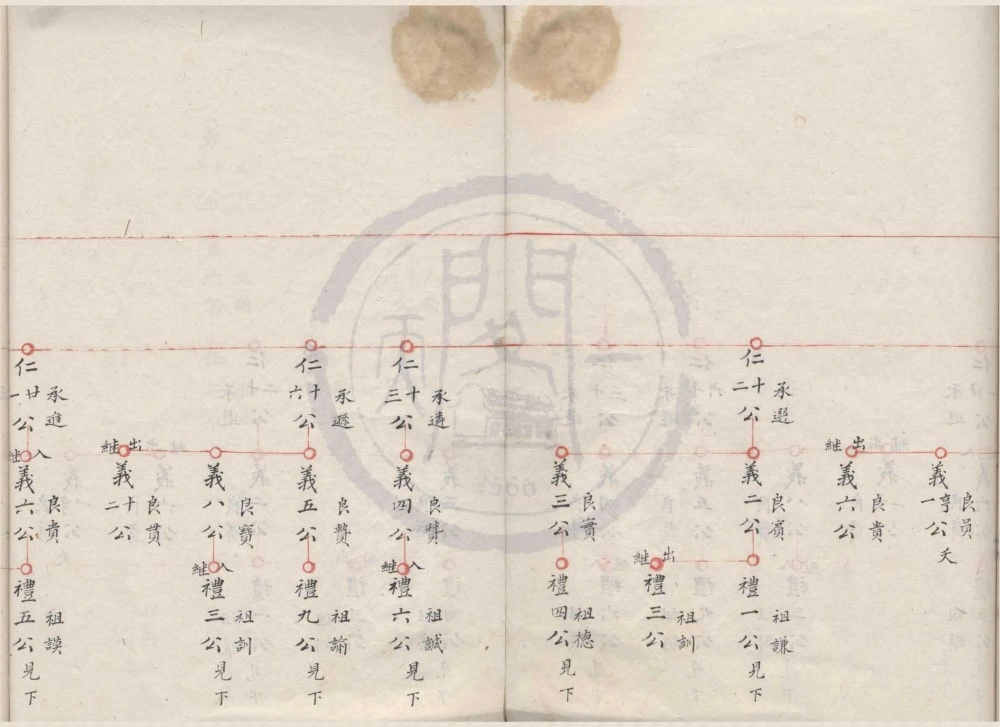 仁十二公 承選
仁十三公 承遴
仁十六公 承遜
仁廿一公 承進
義一公 亨 良員 夭
義六公 良貴 出継
義二公 良賓
義三公 良實
義四公 良賛
義五公 良贊
義八公 良寶
義十二公 良貫 出継
義六公 良貴 入
禮一公 祖謙 見下
禮三公 祖訓 出継
禮四公 祖德 見下
禮六公 祖誠 見下 入継
禮九公 祖諭 見下
禮三公 祖訓 見下 入継
禮五公 祖謨 見下